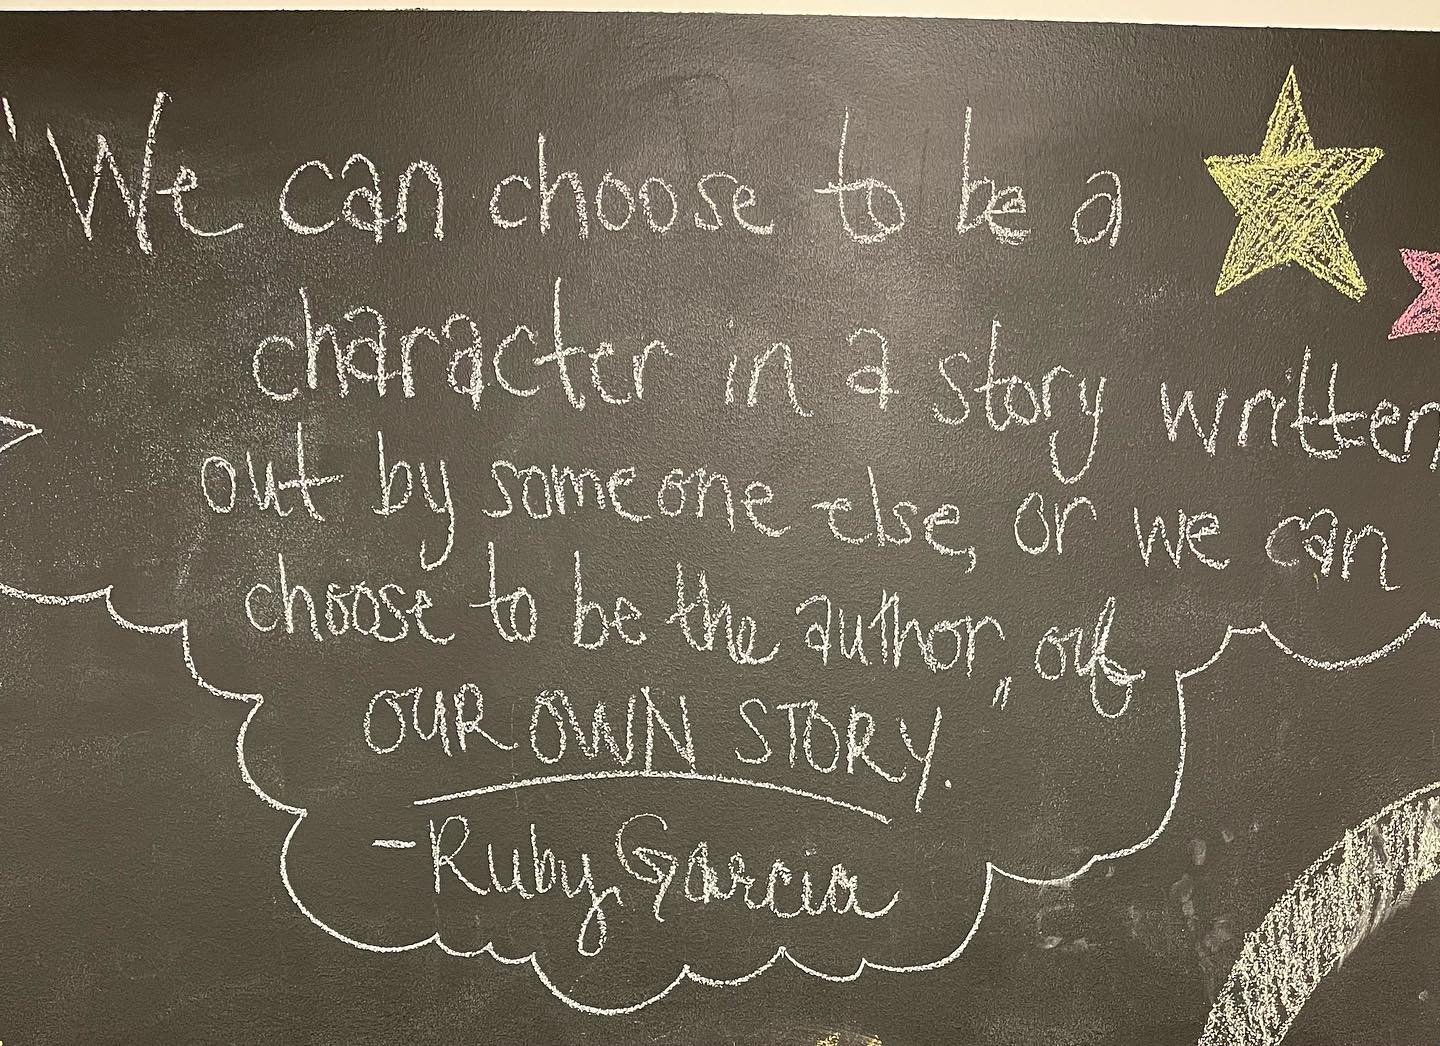 "We can choose to be a
character in a story written
out by someone else, or we can
choose to be the author, of
OUR OWN STORY."
-Ruby Garcia